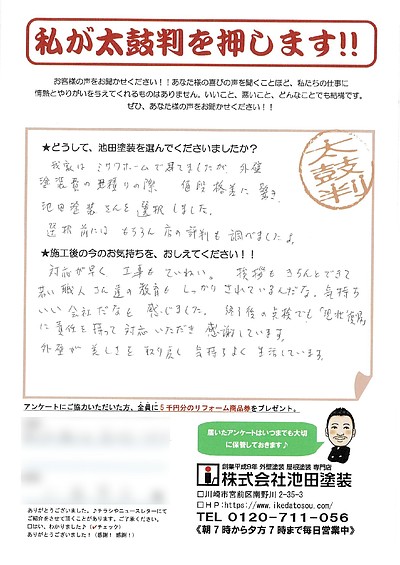 私が太鼓判を押します!!
お客様の声をお聞かせください!!あなた様の喜びの声を聞くことほど、私たちの仕事に
情熱とやりがいを与えてくれるものはありません。いいこと、悪いこと、どんなことでも結構です。
ぜひ、あなた様の声をお聞かせください!!
★どうして、池田塗装を選んでくださいましたか?
太鼓判
我家はミサワホームで建てましたが、外壁
塗装費の見積りの際 値段格差に驚き、
池田塗装さんを選択しました。
選択前にはもちろん店の評判も調べましたよ。
★施工後の今のお気持ちを、おしえてください!!
対応が早く 工事もていねい。 挨拶もきちんとできて
若い職人さん達の教育もしっかりされているんだな。気持ち
いい会社だなも感じました。 終了後の点検でも
に責任を持って対応いただき 感謝しています。
外壁が美しさを取り戻し気持ちよく生活しています。
アンケートにご協力いただいた方、全員に5千円分のリフォーム商品券をプレゼント。
届いたアンケートはいつまでも大切
に保管しております♪
創業平成9年 外壁塗装 屋根塗装 専門店
株式会社池田塗装
□川崎市宮前区南野川2-35-3
□HP:https://www.ikedatosou.com/
TEL 0120-711-056
《朝7時から夕方7時まで毎日営業中》
ありがとうございました。♪チラシやニュースレターにて
ご紹介をさせて頂くことがあります。ご了承ください。
□はい。わかりました♪(✓チェック)
ありがとうございました!(感謝!感謝!)